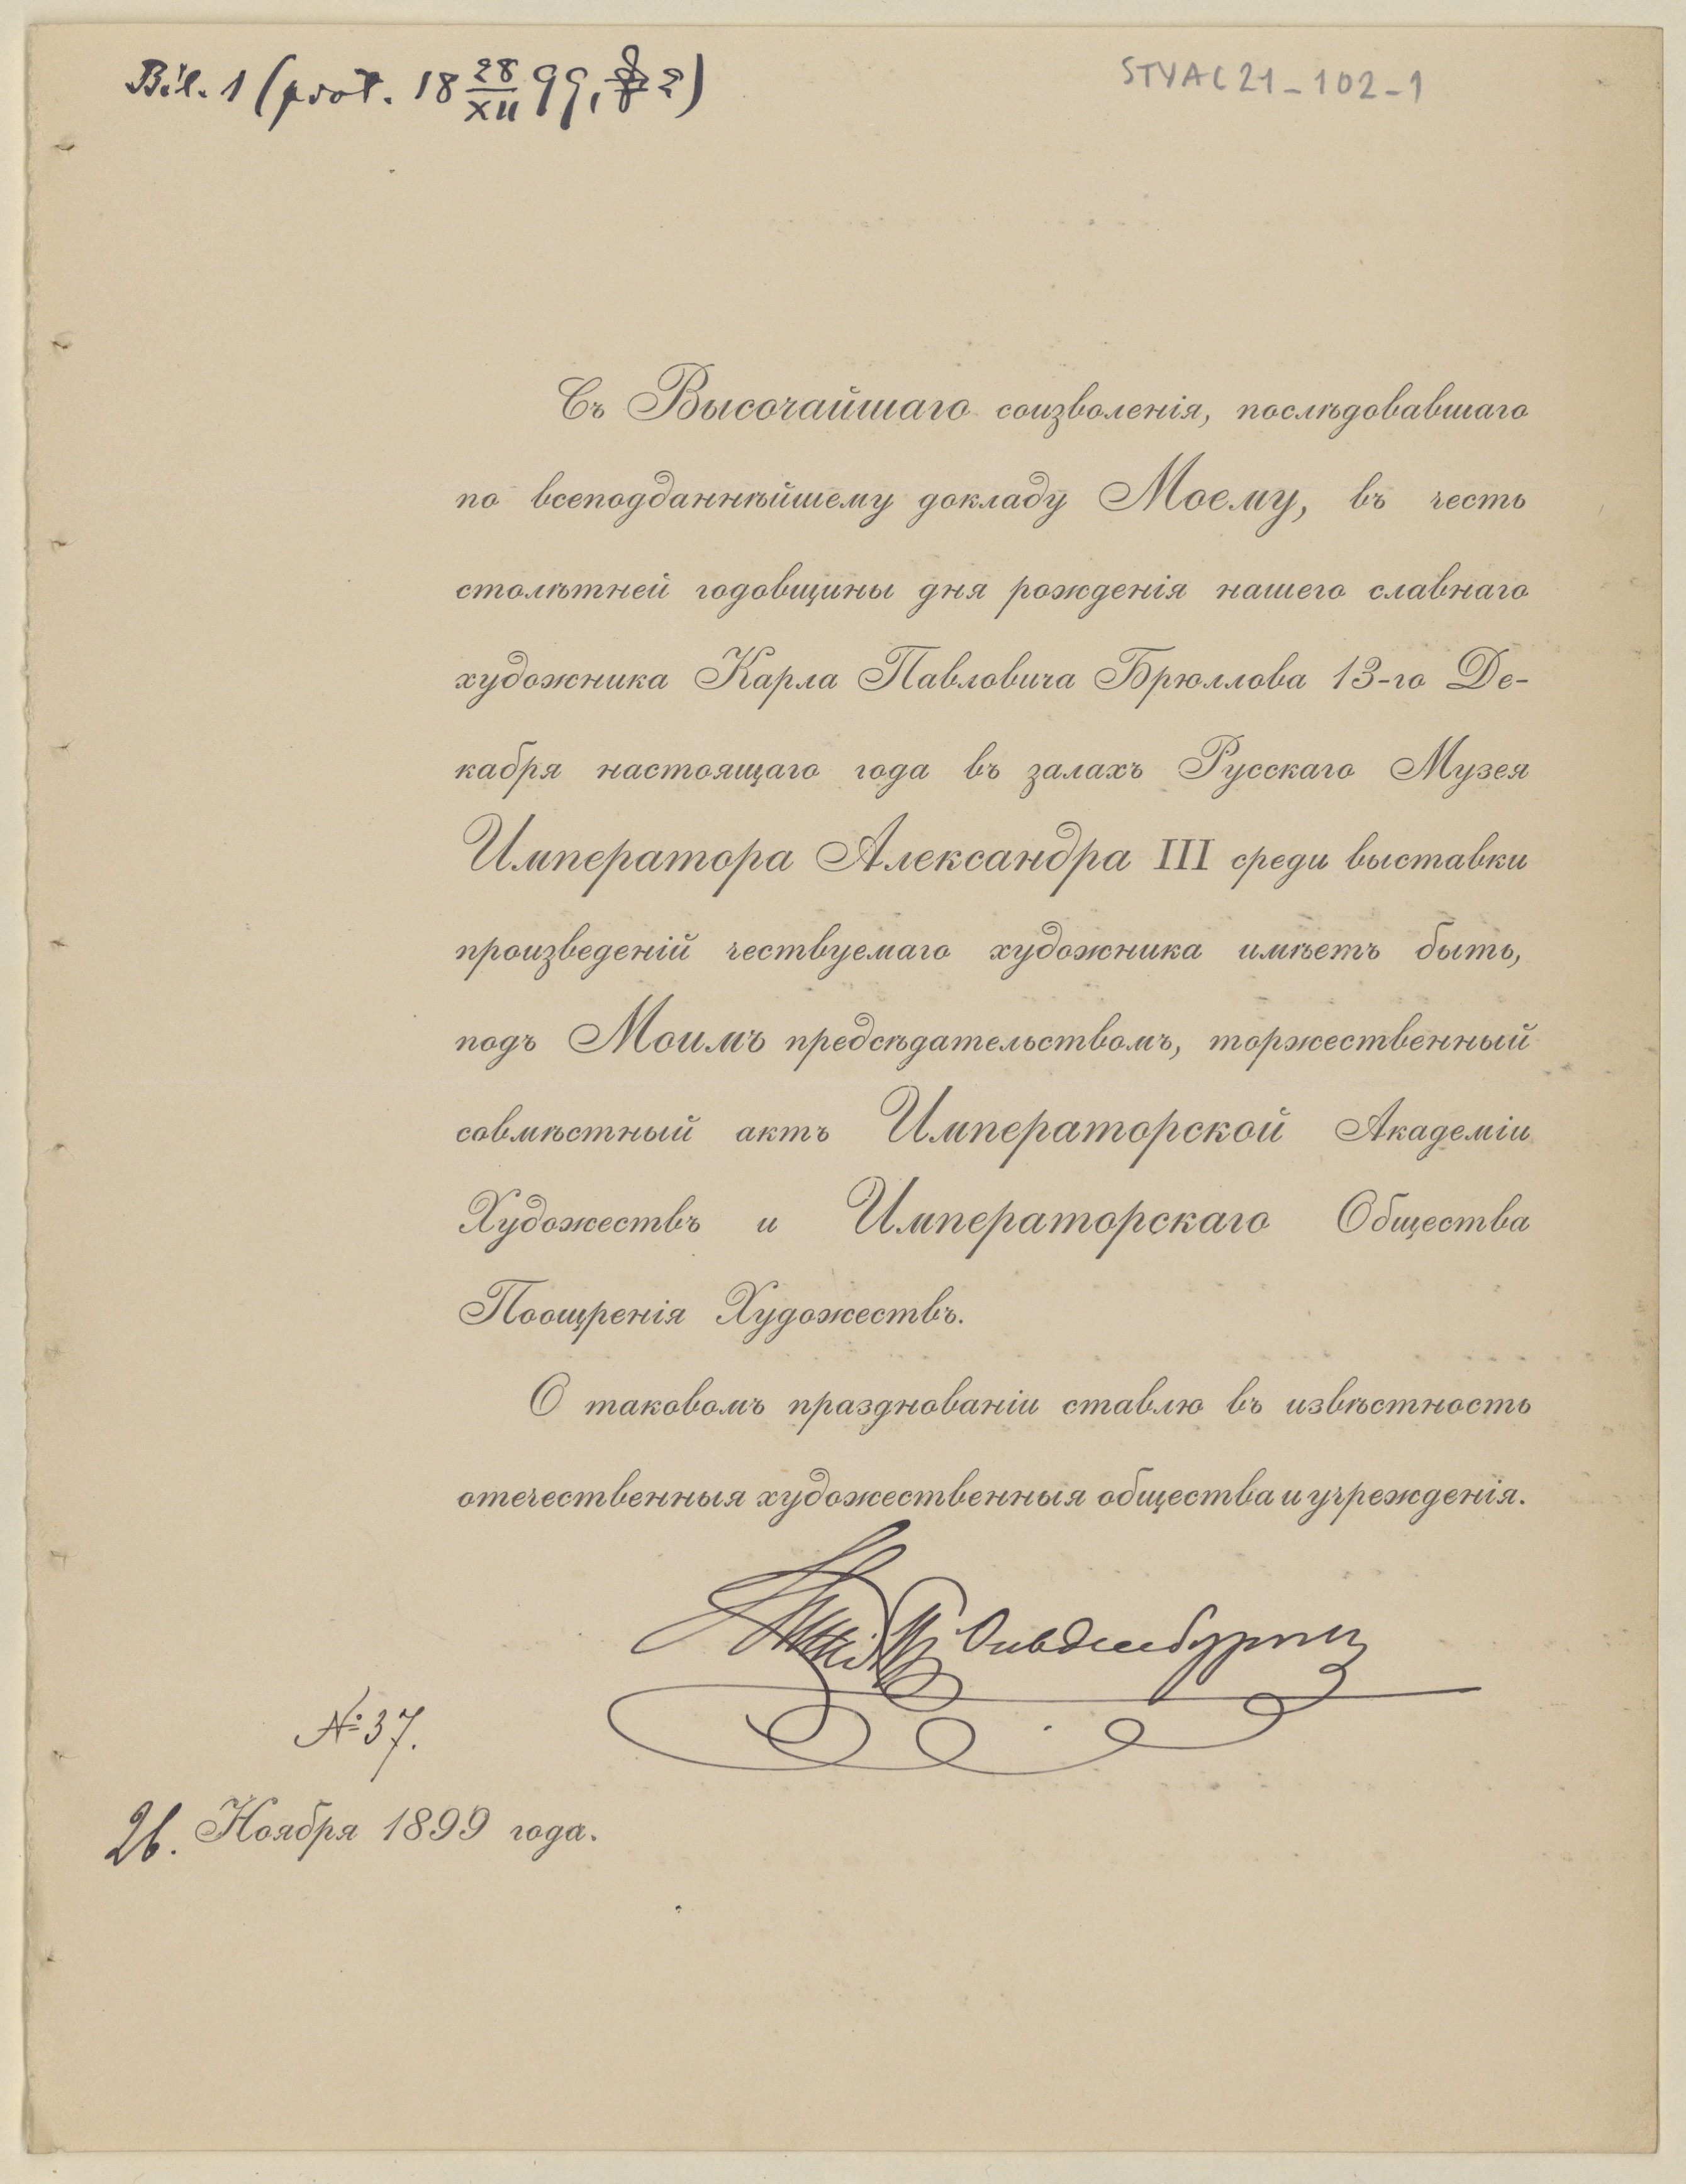 Bil. 1 (prot. 18 28/XII 99, § 2)
STYAC21-102-1
Съ Высочайшаго соизволенія, послѣдовавшаго
по всеподданнѣйшему докладу Моему, въ честь
столѣтней годовщины дня рожденія нашего славнаго
художника Карла Павловича Брюллова 13-го Де-
кабря настоящаго года въ залахъ Русскаго Музея
Императора Александра III среди выставки
произведеній чествуемаго художника имѣетъ быть,
подъ Моимъ предсѣдательствомъ, торжественный
совмѣстный актъ Императорской Академіи
Художествъ и Императорскаго Общества
Поощренія Художествъ.
О таковомъ празднованіи ставлю въ извѣстность
отечественныя художественныя общества и учрежденія.
№ 37.
26. Ноября 1899 года.